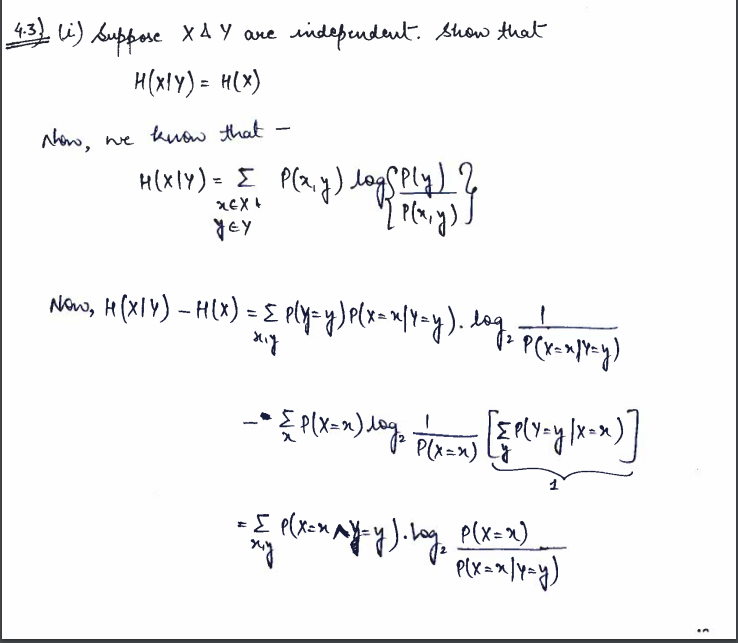 4.3) (i) Suppose X & Y are independent. Show that
H(X|Y) = H(X)
Now, we know that –
H(X|Y) = Σ P(x,y) log { P(y) / P(x,y) }
x∈X &
y∈Y
Now, H(X|Y) – H(X) = Σ P(Y=y) P(X=x|Y=y) . log₂ 1 / P(X=x|Y=y)
x,y
– Σ P(X=x) log₂ 1 / P(X=x) [ Σ P(Y=y|X=x) ]
x y
1
= Σ P(X=x ∧ Y=y) . log₂ P(X=x) / P(X=x|Y=y)
x,y